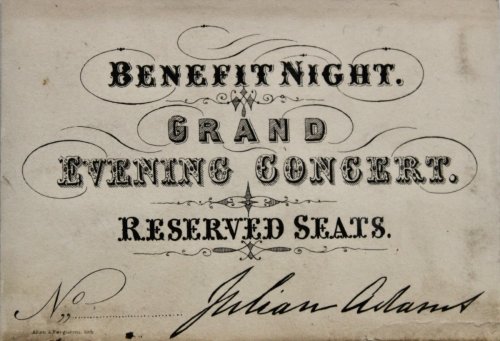 BENEFIT NIGHT.
GRAND
EVENING CONCERT.
RESERVED SEATS.
No. Julian Adams